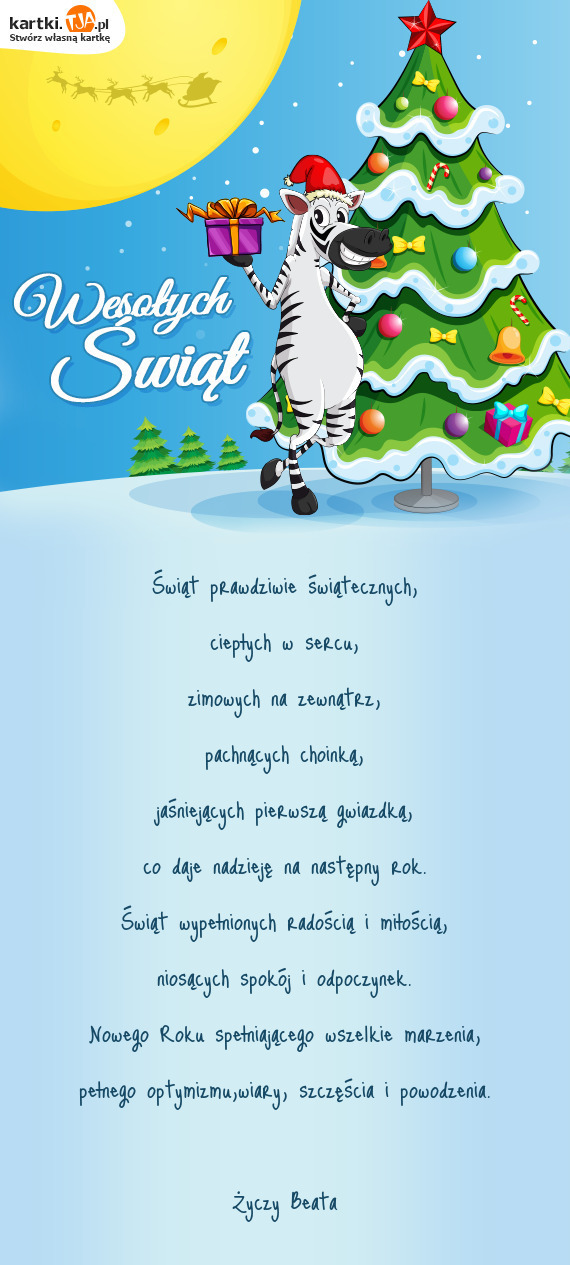 kartki.TJA.pl
Stwórz własną kartkę
Wesołych
Świąt
Świąt prawdziwie świątecznych,
ciepłych w sercu,
zimowych na zewnątrz,
pachnących choinką,
jaśniejących pierwszą gwiazdką,
co daje nadzieję na następny rok.
Świąt wypełnionych radością i miłością,
niosących spokój i odpoczynek.
Nowego Roku spełniającego wszelkie marzenia,
pełnego optymizmu,wiary, szczęścia i powodzenia.
Życzy Beata